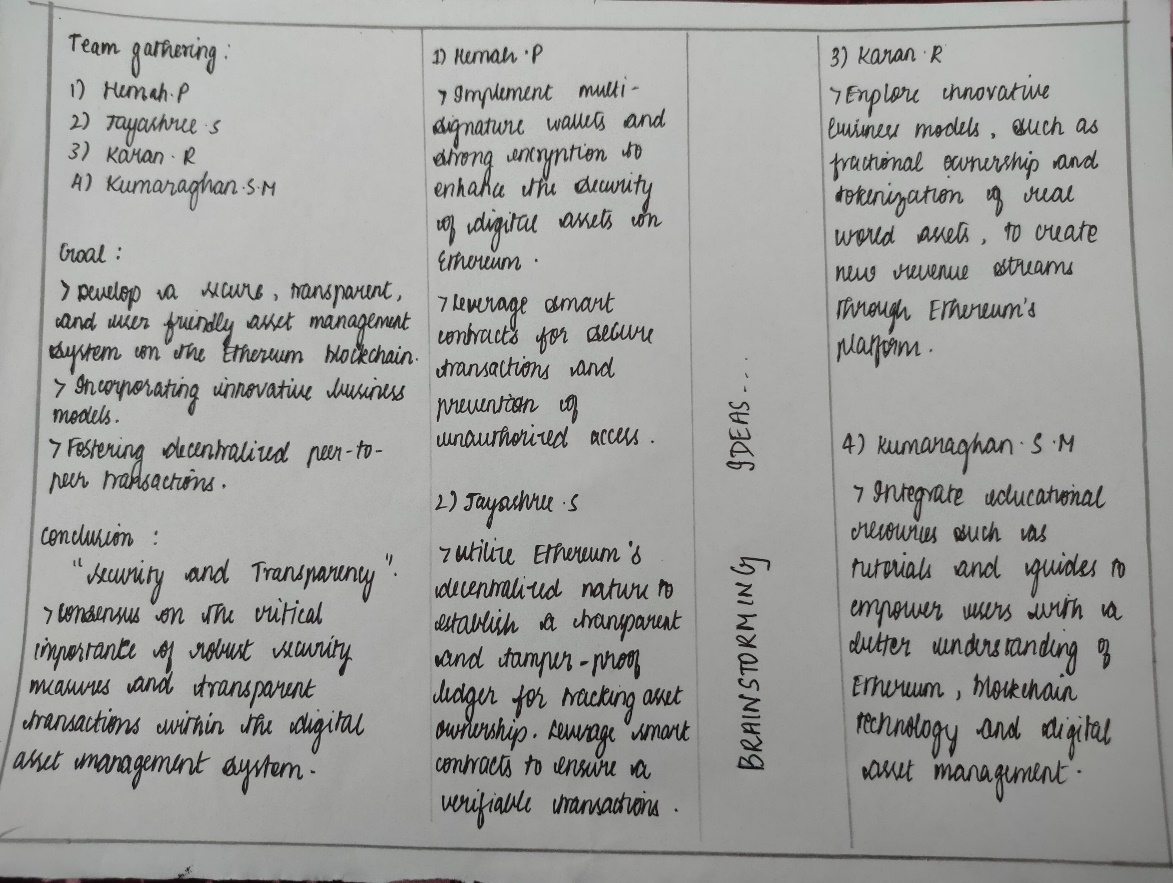 Team gathering:
1) Hemah.P
2) Jayashree.S
3) Karan.R
4) Kumaraghan.S.M
Goal:
> Develop a secure, transparent,
and user friendly asset management
system on the Ethereum blockchain.
> Incorporating innovative business
models.
> Fostering decentralized peer-to-
peer transactions.
Conclusion:
"Security and Transparency".
> consensus on the critical
importance of robust security
measures and transparent
transactions within the digital
asset management system.
1) Hemah.P
> Implement multi-
signature wallets and
strong encryption to
enhance the security
of digital assets on
Ethereum.
> Leverage smart
contracts for secure
transactions and
prevention of
unauthorized access.
2) Jayashree.S
> Utilize Ethereum's
decentralized nature to
establish a transparent
and tamper-proof
ledger for tracking asset
ownership. Leverage smart
contracts to ensure a
verifiable transactions.
BRAINSTORMING IDEAS...
3) Karan.R
> Explore innovative
business models, such as
fractional ownership and
tokenization of real
world assets, to create
new revenue streams
through Ethereum's
platform.
4) Kumaraghan.S.M
> Integrate educational
resources such as
tutorials and guides to
empower users with a
better understanding of
Ethereum, blockchain
technology and digital
asset management.